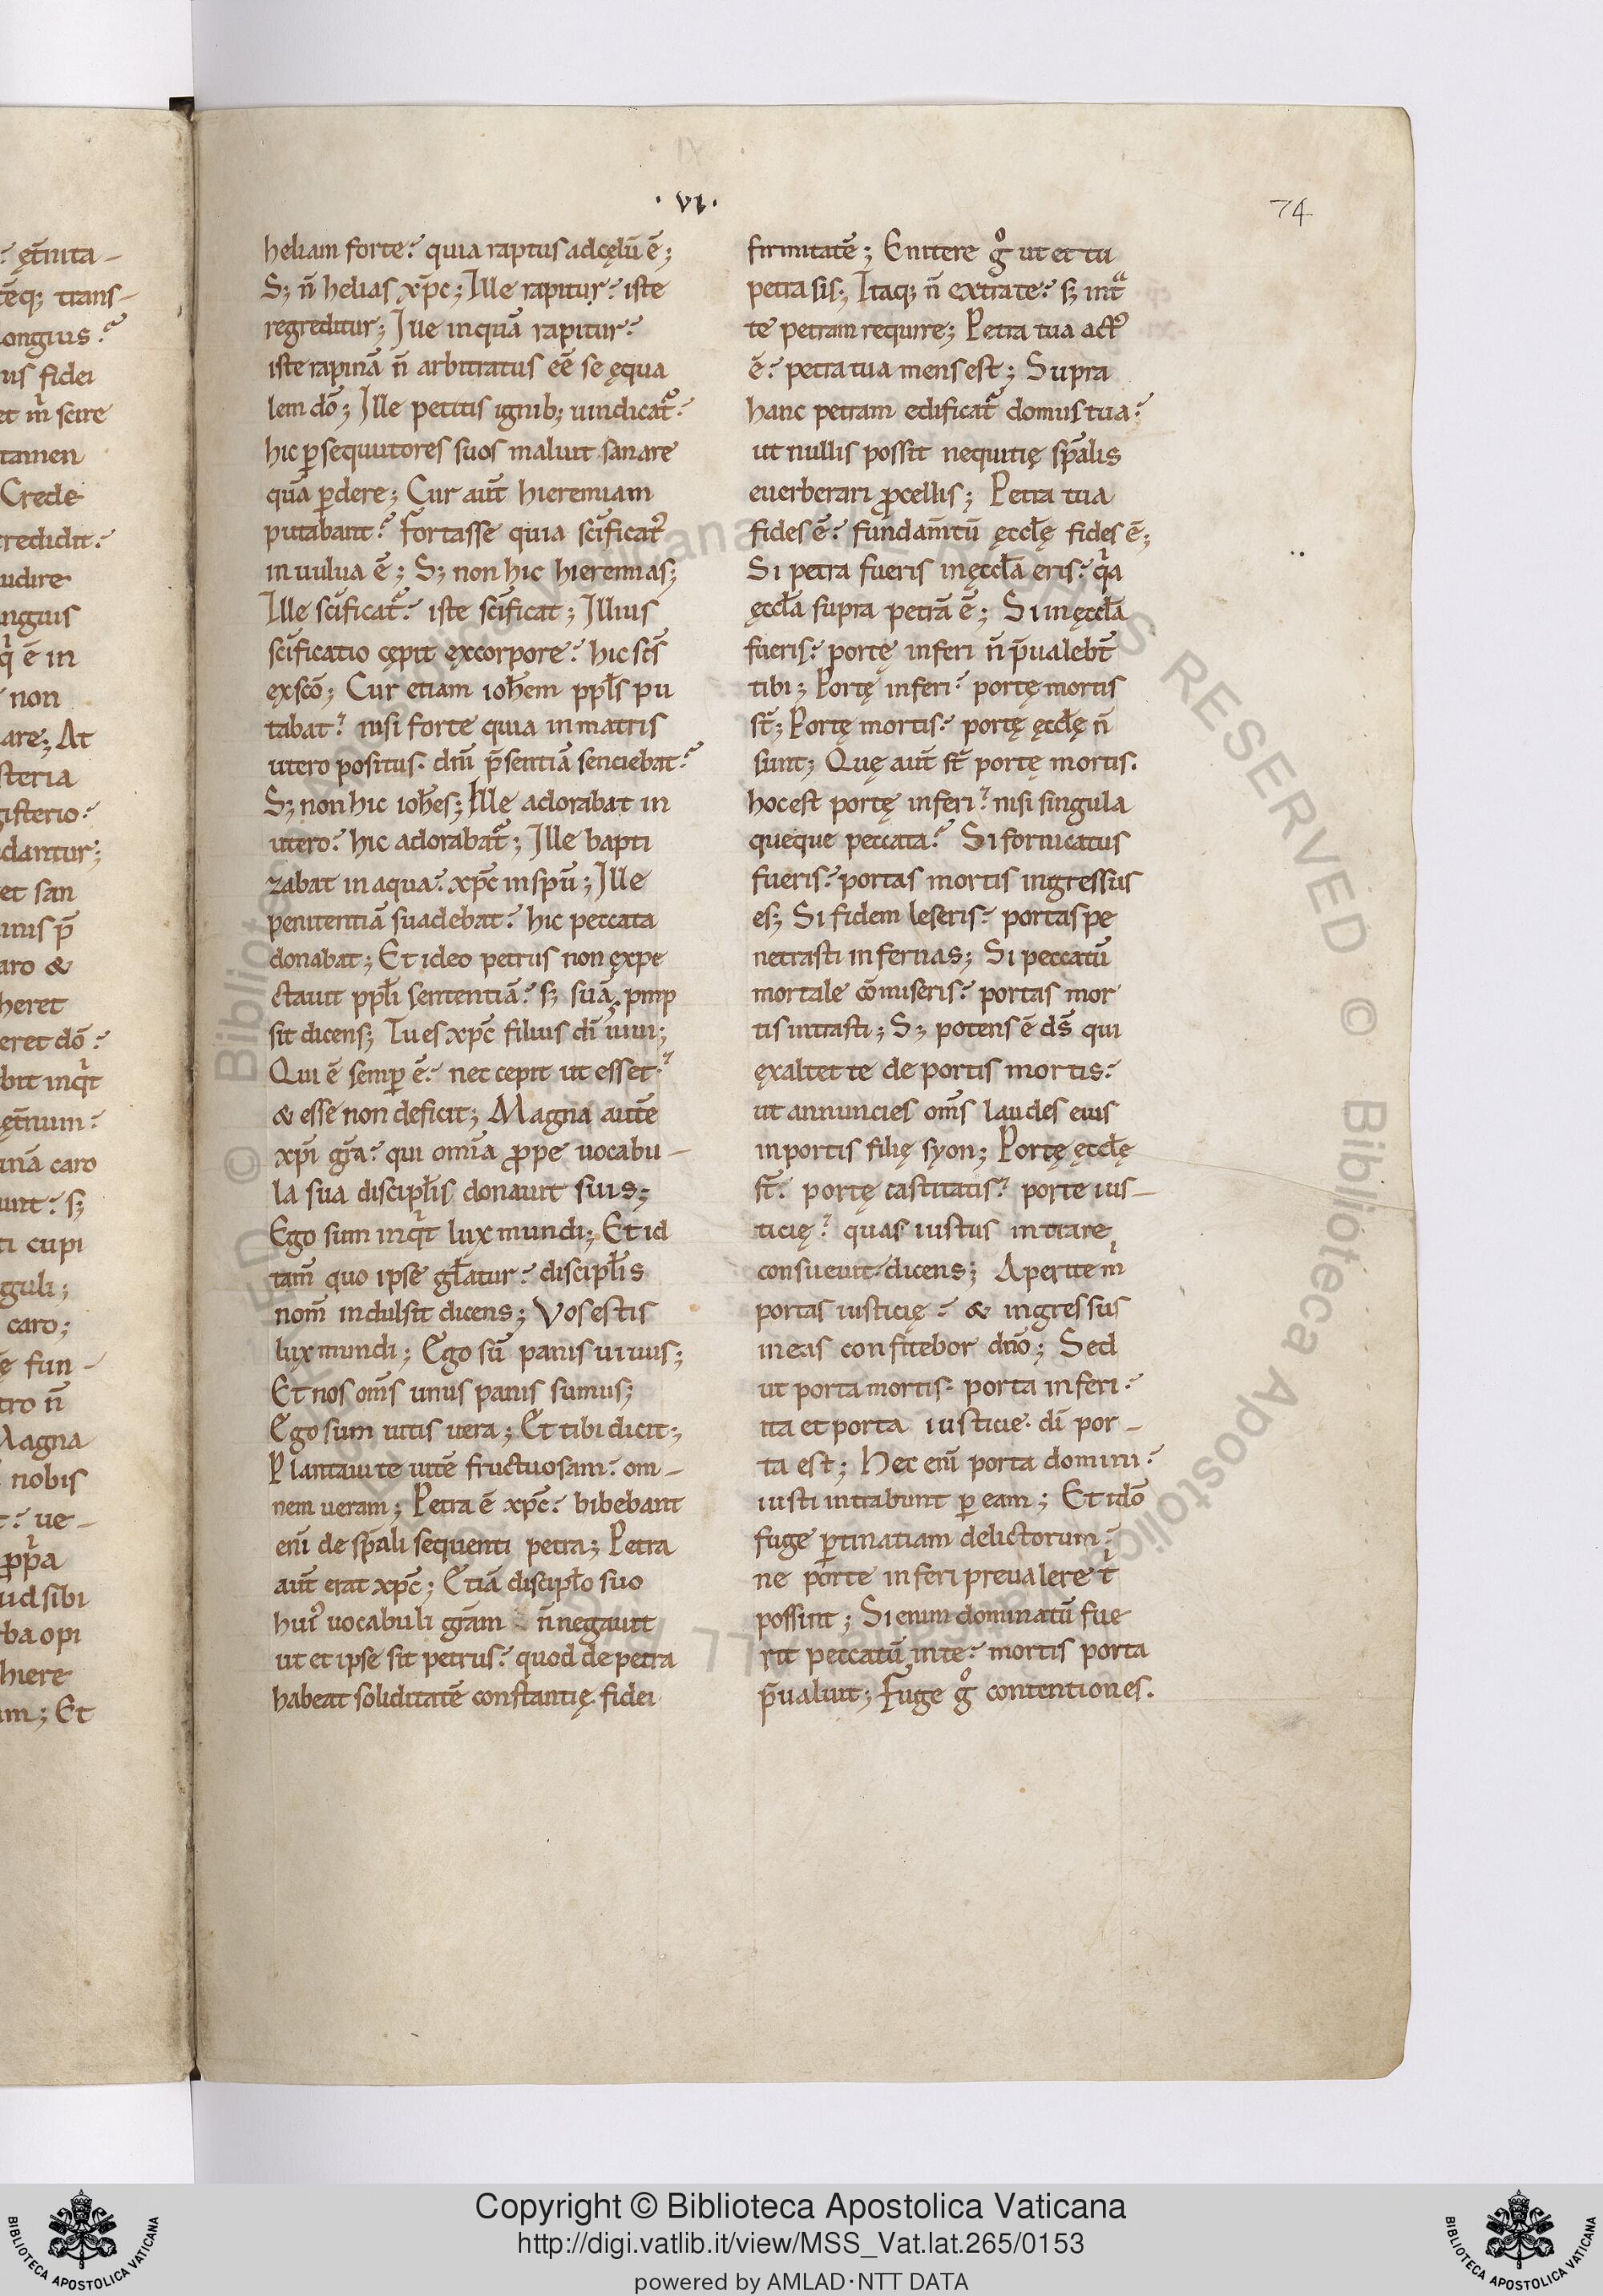 · VI ·
74
heliam forte? quia raptus adcęlū ē;
S; n̄ helias xp̄c; Ille rapitur? iste
regreditur; Ille inquā rapitur?
iste rapinā n̄ arbitratus eē se ęqua
lem dō; Ille petitis ignib; uindicat᷑?
hic ꝑsequutores suos maluit sanare
quā ꝑdere; Cur aut̄ hieremiam
putabant? Fortasse quia sc̄ificatꝰ
in uulua ē; S; non hic hieremias;
Ille sc̄ificat᷑? iste sc̄ificat; Illius
sc̄ificatio cępit ęxcorpore? hic sc̄s
ęxsc̄o; Cur etiam ioh̄em ppl̄s pu
tabat? nisi forte quia in matris
utero positus. dn̄i p̄sentiā senciebat?
S; non hic ioh̄es; Ille adorabat in
utero? hic adorabat᷑; Ille bapti
zabat in aqua? xp̄c in spū; Ille
penitentiā suadebat? hic peccata
donabat; Et ideo petrus non ęxpe
ctauit ppl̄i sententiā? s; suā pmp
sit dicens; Tu es xp̄c filius dī uiui;
Qui ē semꝑ ē? nec cepit ut esset?
& esse non deficit; Magna autē
xp̄i gr̄a? qui om̄ia ꝓpe uocabu-
la sua discipl̄is donauit suis;
Ego sum inqͥt lux mundi; Et id
tam̄ quo ipse gl̄atur? discipl̄is
nom̄ indulsit dicens; Vos estis
lux mundi; Ego sū panis uiuus;
Et nos om̄s unus panis sumus;
Ego sum uitis uera; Et tibi dicit;
Plantaui te uitē fructuosam? om-
nem ueram; Petra ē xp̄c? bibebant
enī de sp̄ali sequenti petra; Petra
aut̄ erat xp̄c; Etiā discipl̄o suo
huiꝰ uocabuli gr̄am n̄ negauit
ut et ipse sit petrus? quod de petra
habeat soliditatē constantię fidei
firmitatē; Enitere gͦ ut et tu
petra sis; Itaq; n̄ extra te? s; intᷓ
te petram require; Petra tua actꝰ
ē? petra tua mens est; Supra
hanc petram edificat᷑ domus tua?
ut nullis possit nequitię sp̄alis
euerberari ꝓcellis; Petra tua
fides ē? fundam̄tū ęccl̄ę fides ē;
Si petra fueris in ęccl̄a eris? qͥa
ęccl̄a supra petrā ē; Si in ęccl̄a
fueris? portę inferi n̄ p̄ualebt̄
tibi; Portę inferi? portę mortis
st̄; Portę mortis? portę ęccl̄ę n̄
sunt; Quę aut̄ st̄ portę mortis.
hoc est portę inferi? nisi singula
queque peccata? Si fornicatus
fueris? portas mortis ingressus
es; Si fidem leseris? portas pe
netrasti infernas; Si peccatū
mortale cōmiseris? portas mor
tis intrasti; S; potens ē ds̄ qui
ęxaltet te de portis mortis?
ut annuncies om̄s laudes eius
in portis filię syon; Portę ęccl̄ę
st̄? portę castitatis? porte ius-
ticię? quas iustus intrare
consueuit. dicens; Aperite mͥ
portas iusticię? & ingressus
in eas confitebor dn̄o; Sed
ut porta mortis. porta inferi?
ita et porta iusticie. dī por-
ta est; Hec enī porta domini?
iusti intrabunt ꝑ eam; Et idō
fuge ꝑtinatiam delictorum?
ne porte inferi preualere tͥ
possint; Si enim dominatū fue
rit peccatū in te? mortis porta
p̄ualuit; Fuge gͦ contentiones.
? ęt̄nita-
trans-
longius?
fidei
et mͥ scire
tamen
Crede
redidit?
udire
qͥ ē in
non
are; At
steria
gisterio?
dantur;
et san
aro &
heret
eret dō?
bit inqͥt
ęt̄num?
caro
unt? s;
ti cupi
guli;
caro;
ę fun-
tro n̄
Magna
nobis
? ue-
ꝓpͥa
ud sibi
ba opi
hiere
m; Et
© Biblioteca Apostolica Vaticana ALL RIGHTS RESERVED
Copyright © Biblioteca Apostolica Vaticana
http://digi.vatlib.it/view/MSS_Vat.lat.265/0153
powered by AMLAD·NTT DATA
BIBLIOTECA APOSTOLICA VATICANA
BIBLIOTECA APOSTOLICA VATICANA